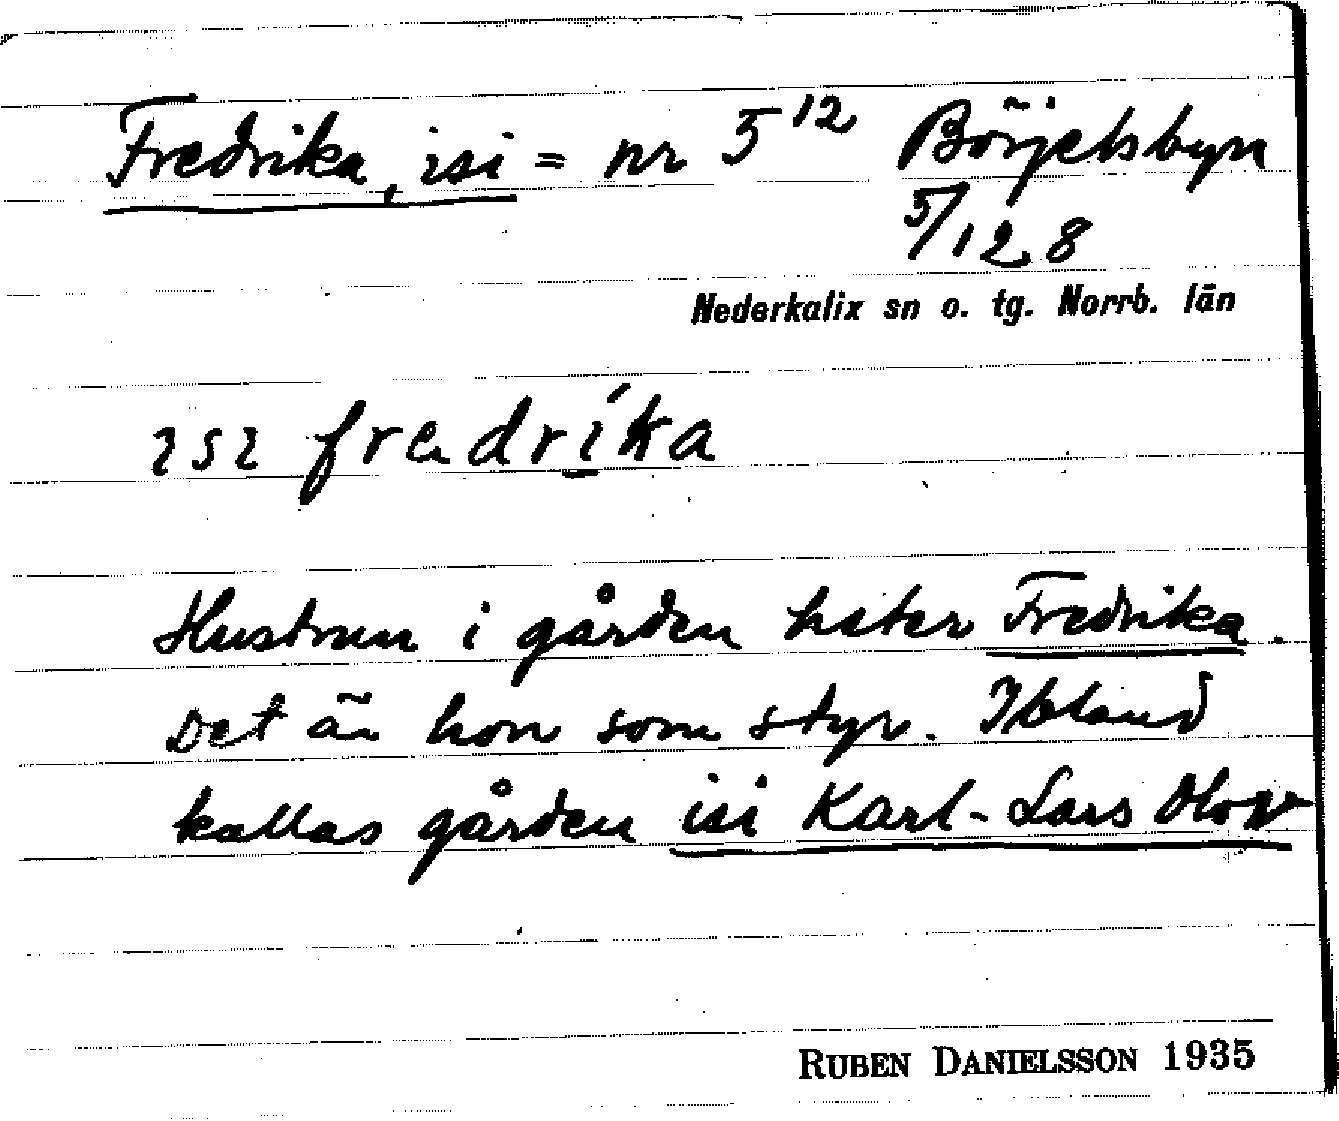 Fredrika, isi = nr 5 12 Börjelsbyn
5/12 8
Nederkalix sn o. tg. Norrb. län
ısı fredrika
Hustrun i gården heter Fredrika.
Det är hon som styr. Ibland
kallas gården isi Karl-Lars Olov
RUBEN DANIELSSON 1935